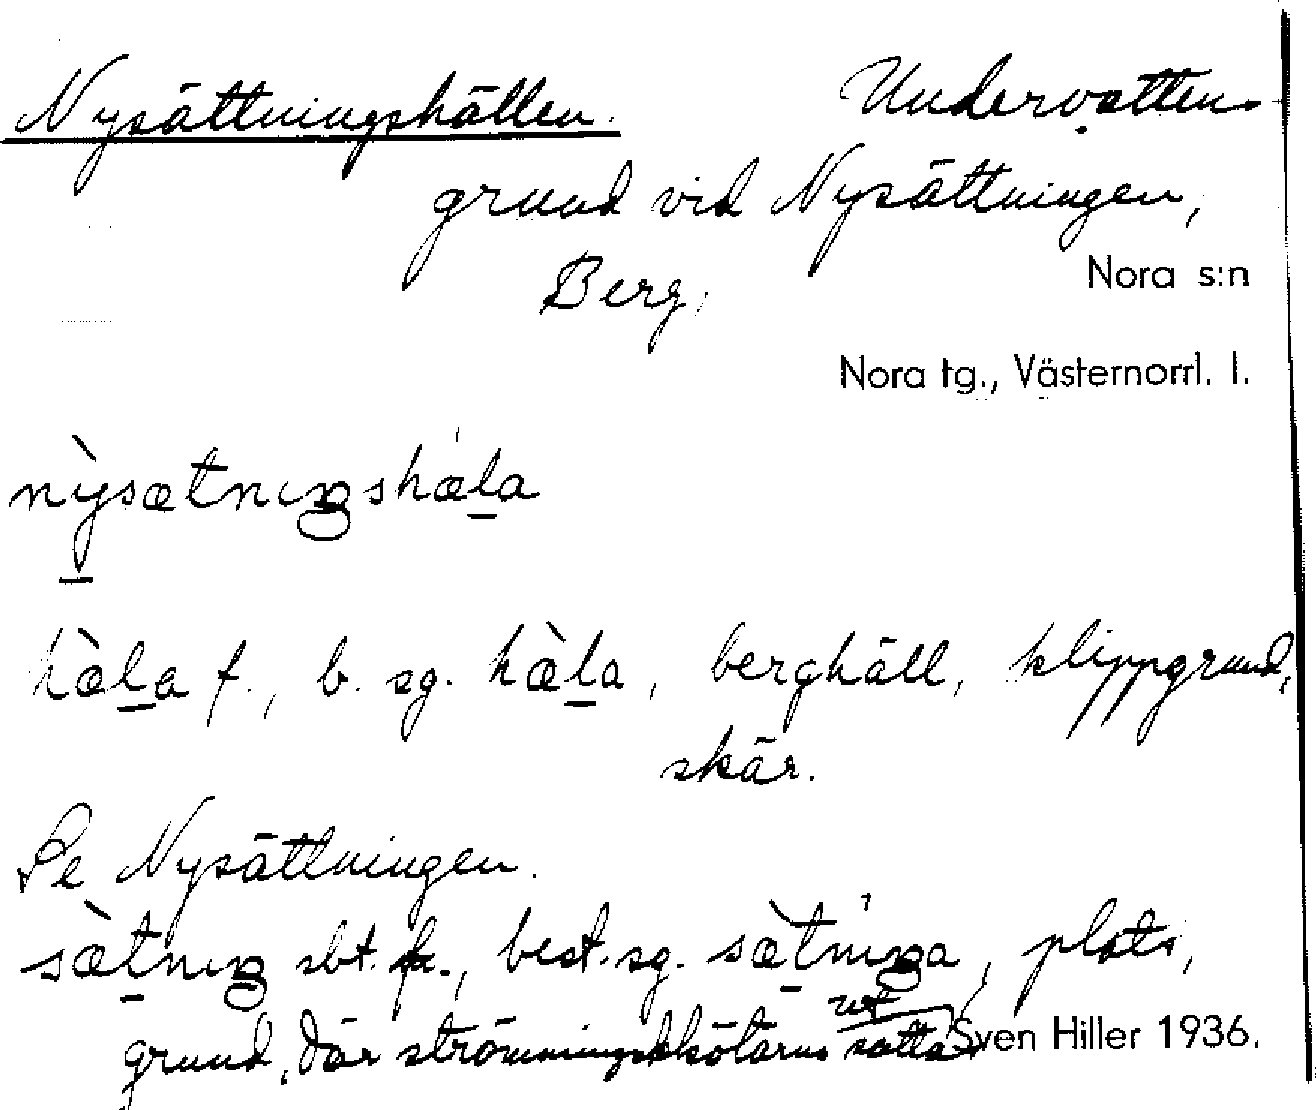 Nysättningshällen. Undervattens-
grund vid Nysättningen,
Berg, Nora s:n
Nora tg., Västernorrl. l.
nỳsætnıŋshæla
hæ̀la f., b. sg. hæ̀la, berghäll, klippgrund,
skär.
Se Nysättningen.
sæ̀tnıŋ sbt. f., best. sg. sæ̀tnıŋa, plats,
grund, där strömmingsskötarna utsättas
Sven Hiller 1936.